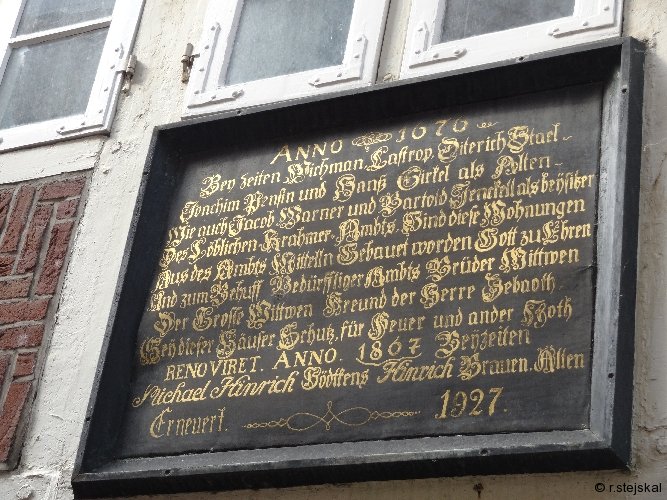 ANNO 1676
Bey Zeiten Wichman, Lastrop, Diterich Stael-
Joachim Pensin und Hanß Sirkel als Alten-
Wie auch Jacob Warner und Bartold Jenckell als beysitzer
Des Löblichen Krahmer-Ambts, Sind diese Wohnungen
Aus des Ambts Mitteln Gebauet worden Gott zu Ehren
Und zum Behuff Bedürfftiger Ambts Brüder Wittwen
Der Grosse Wittwen Freund der Herre Zebaoth-
Sey dieser Häuser Schutz, für Feuer und ander Noth
RENOVIRET. ANNO. 1867 Beyzeiten
Michael Hinrich Böttens Hinrich Brauen, Alten
Erneuert. 1927.
© r.stejskal